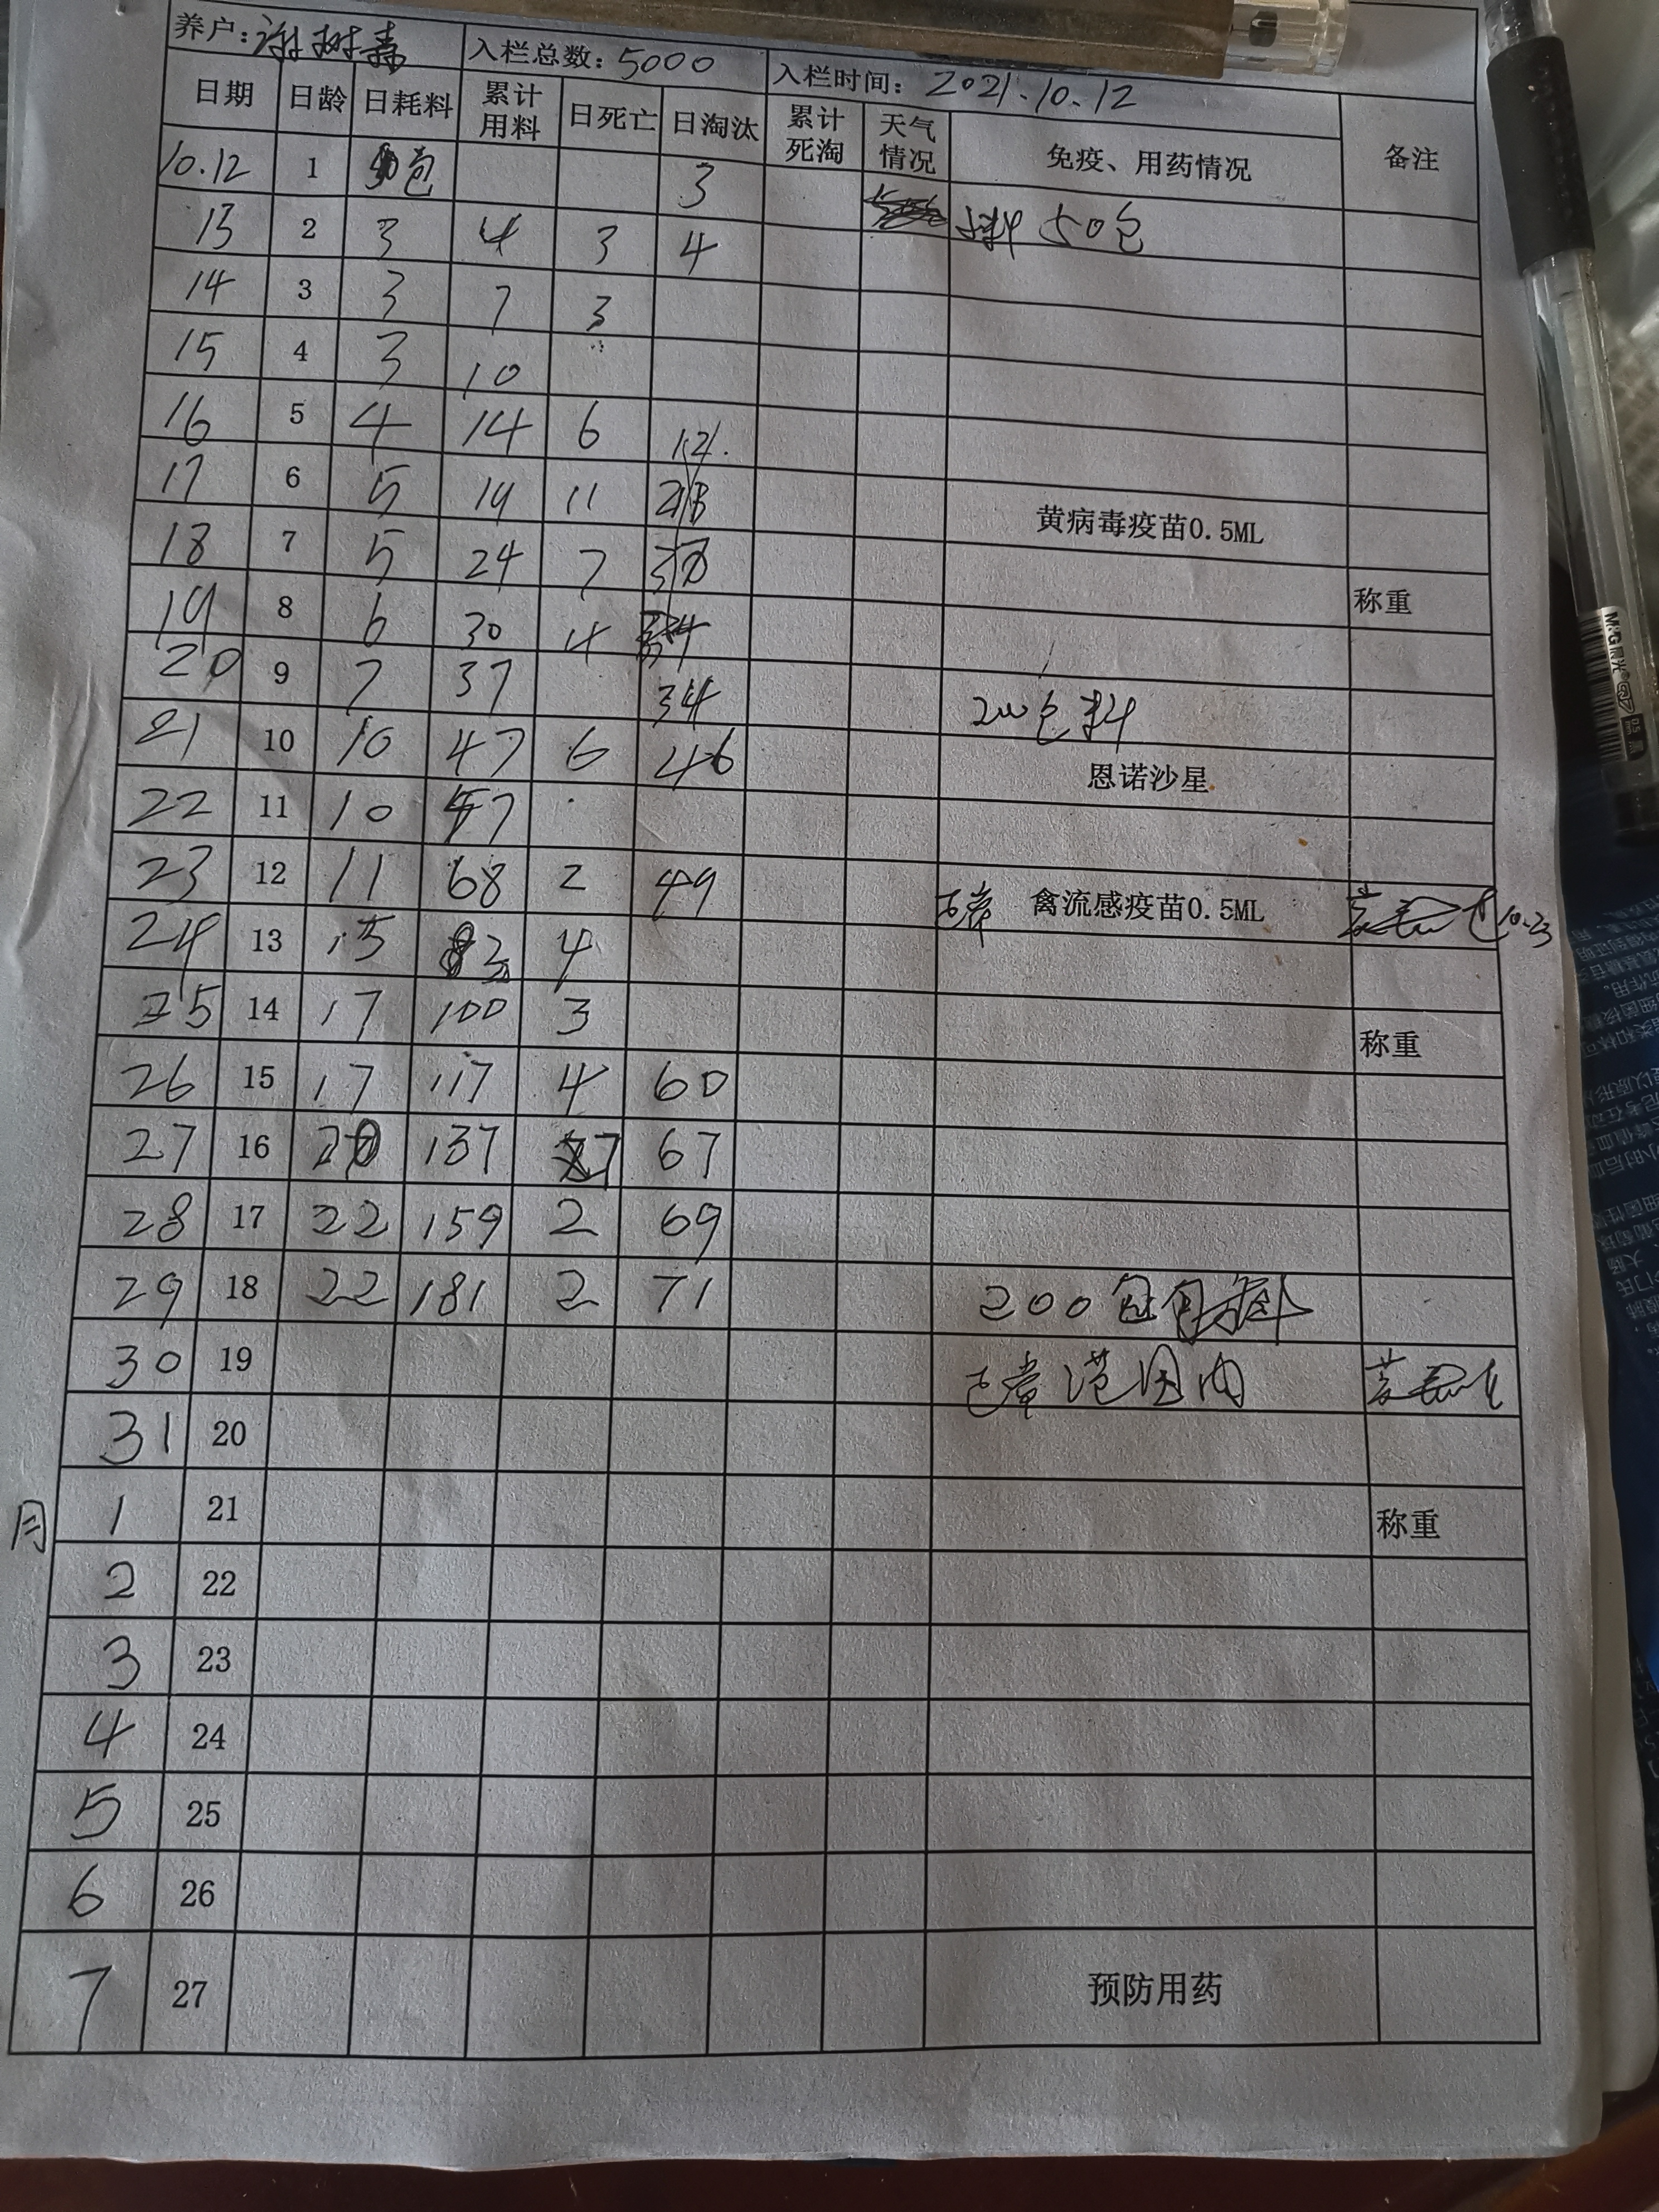 养户: 谢树森 入栏总数: 5000 入栏时间: 2021.10.12
日期 日龄 日耗料 累计用料 日死亡 日淘汰 累计死淘 天气情况 免疫、用药情况 备注
10.12 1 包 3
13 2 3 4 3 4 料50包
14 3 3 7 3
15 4 3 10
16 5 4 14 6 12.
17 6 5 19 11
18 7 5 24 7
19 8 6 30 4
20 9 7 37 34 200包料
21 10 10 47 6 46 恩诺沙星
22 11 10 57
23 12 11 68 2 49 正常 禽流感疫苗0.5ML 10.23
24 13 15 83 4
25 14 17 100 3 称重
26 15 17 117 4 60
27 16 20 137 7 67
28 17 22 159 2 69
29 18 22 181 2 71 200包
30 19 正常范围内
31 20
月 1 21 称重
2 22
3 23
4 24
5 25
6 26
7 27 预防用药
黄病毒疫苗0.5ML
称重
M&G晨光